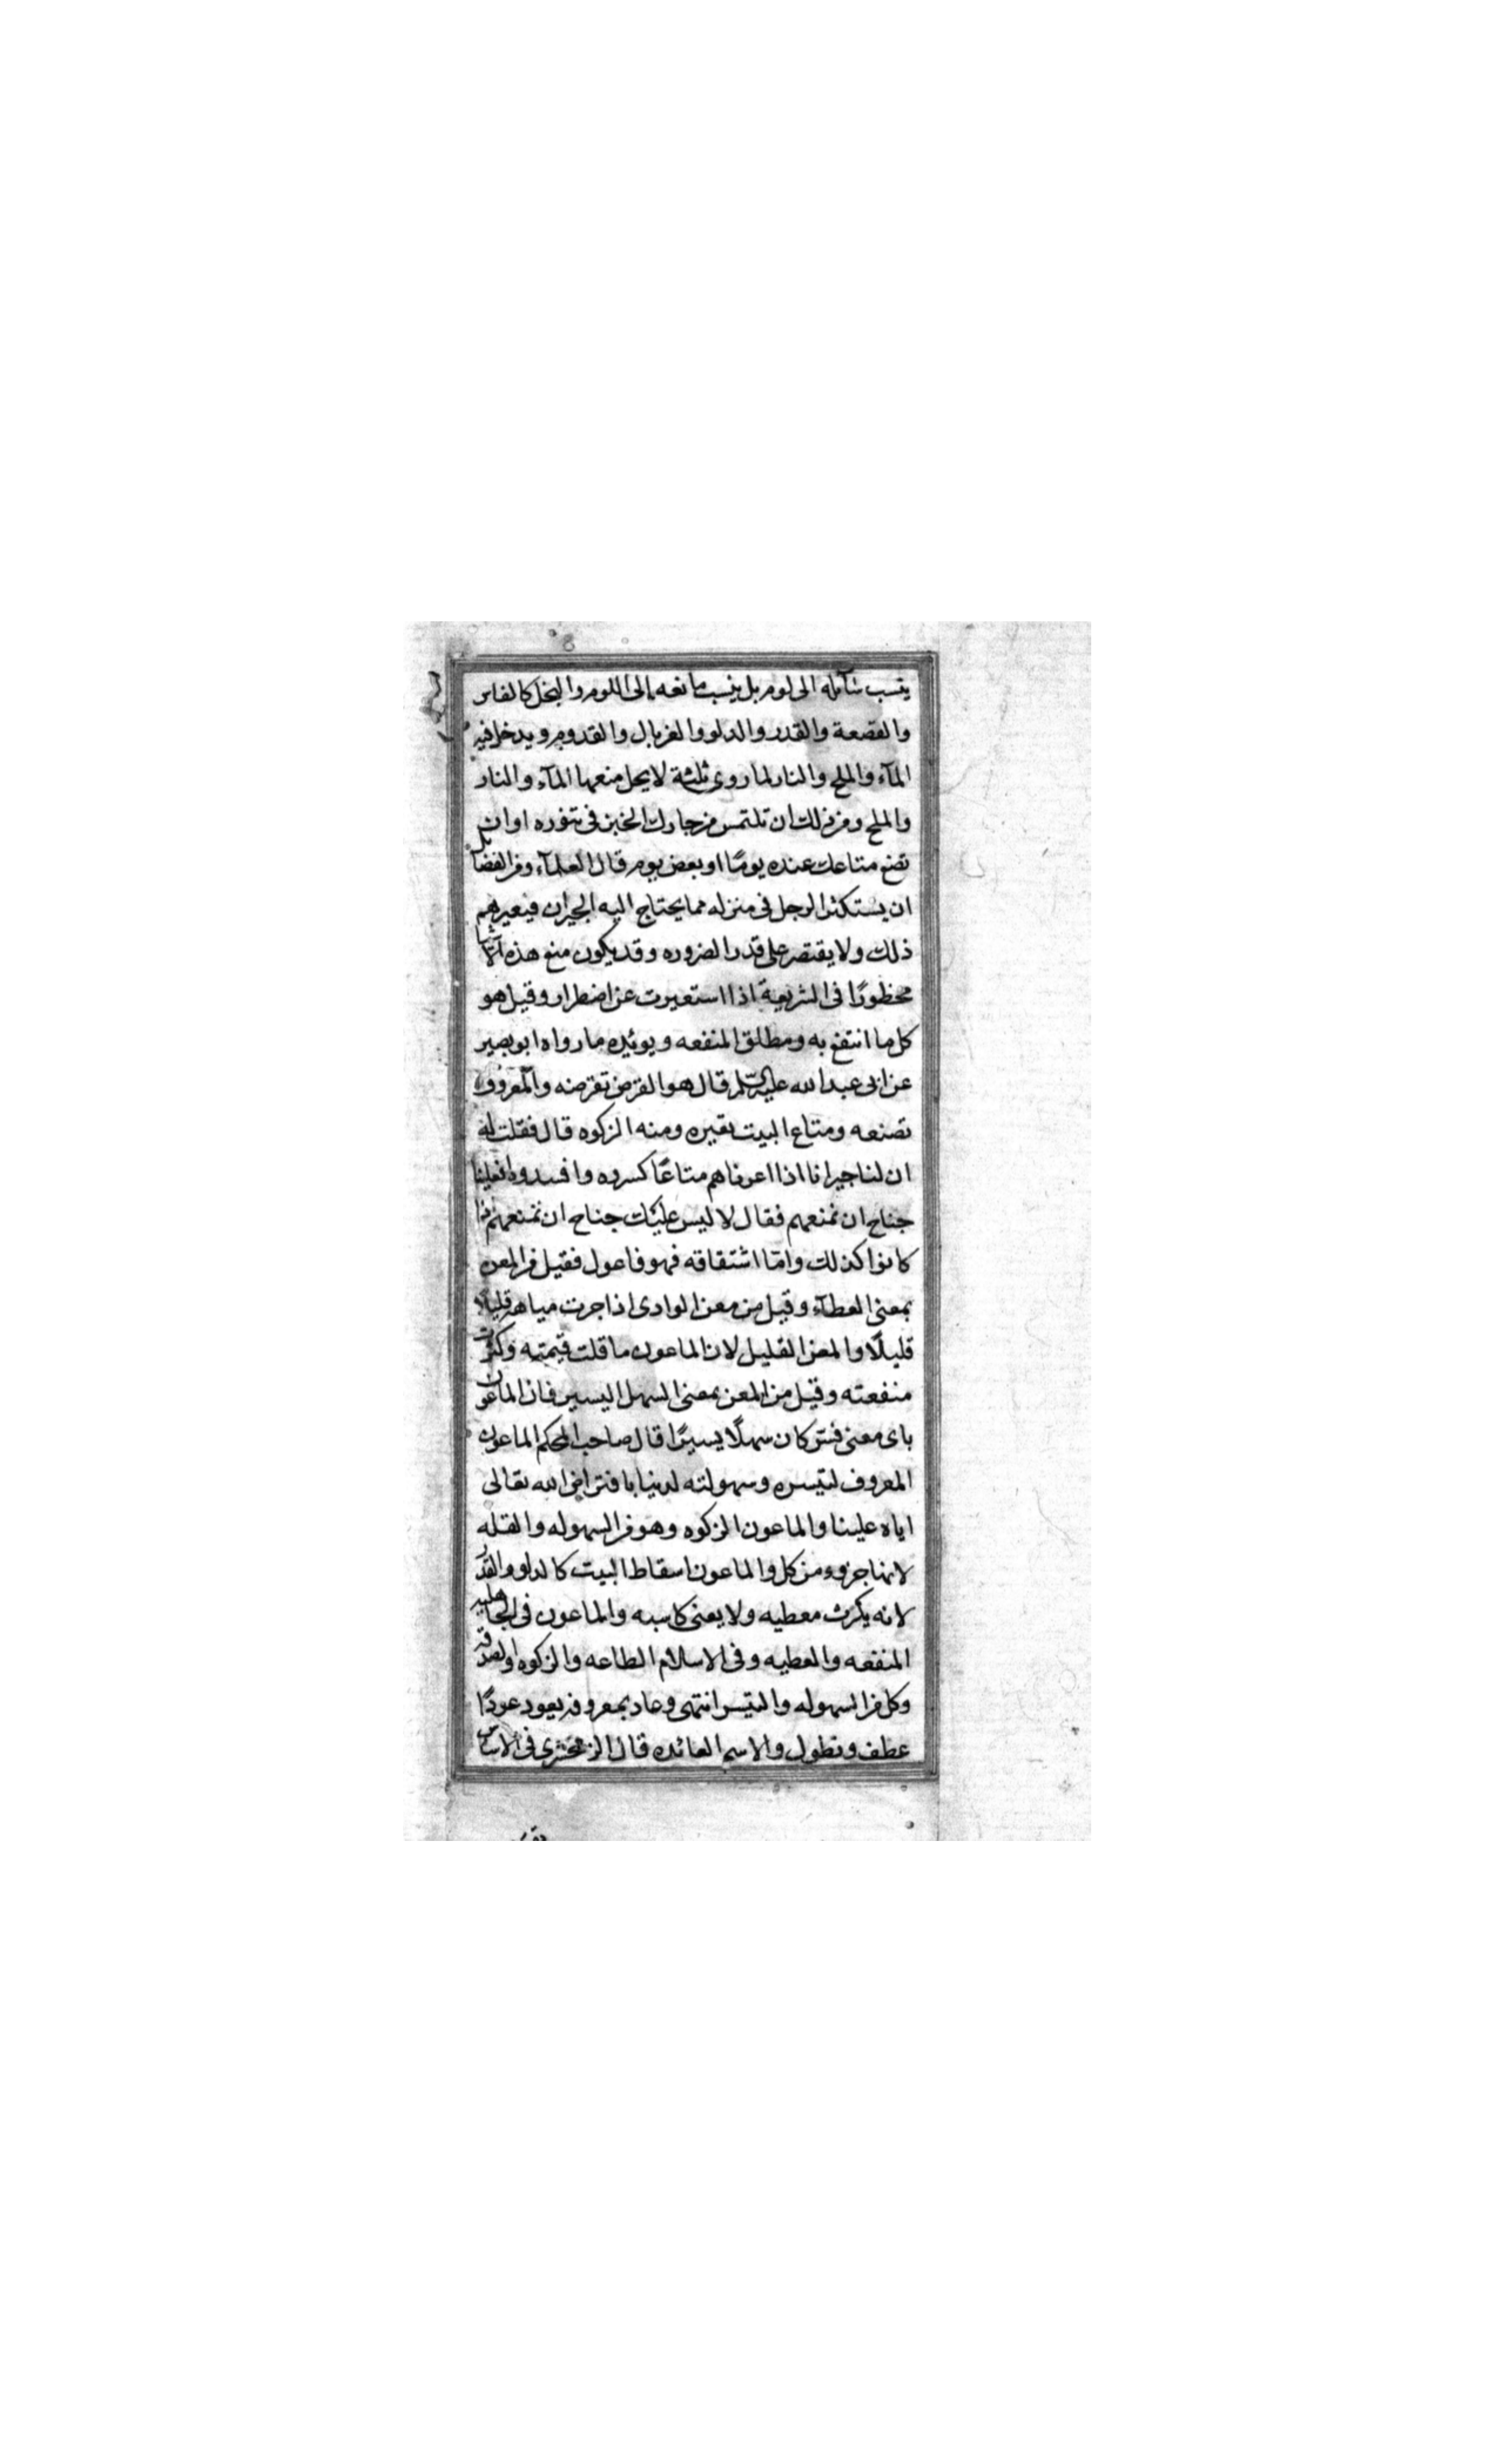 ينسب سآئله الى لوم بل ينسب مانعه الى اللوم والبخل كالفاس
والقصعة والقدر والدلو والغربال والقدوم ويدخل فيه
المآء والملح والنار لما روى ثلثة لا يحل منعها المآء والنار
والملح ومن ذلك ان تلتمس من جارك الخبز فى تنوره او ان
تضع متاعك عنده يومًا او بعض يوم قال العلمآء ومن الفضائل
ان يستكثر الرجل فى منزله مما يحتاج اليه الجيران فيعيرهم
ذلك ولا يقتصر على قدر الضروره وقد يكون منع هذه الاشيا
محظورًا فى الشريعة اذا استعيرت عن اضطرار وقيل هو
كل ما انتفع به ومطلق المنفعه ويوئيده ما رواه ابو بصير
عن ابى عبد الله عليه السّلم قال هو القرض تقرضه والمعروف
تصنعه ومتاع البيت تعيره ومنه الزكوه قال فقلت له
ان لنا جيرانا اذا اعرناهم متاعًا كسروه وافسدوه افعلينا
جناح ان نمنعهم فقال لا ليس عليك جناح ان تمنعهم اذا
كانوا كذلك وامّا اشتقاقه فهو فاعول فقيل من المعن
بمعنى العطآء وقيل من معن الوادى اذا جرت مياهه قليلًا
قليلًا والمعن القليل لان الماعون ما قلت قيمته وكثرت
منفعته وقيل من المعن بمعنى السهل اليسير فان الماعون
باى معنى فسّر كان سهلًا يسيرًا قال صاحب المحكم الماعون
المعروف لتيسره وسهولته لدينا بافتراض الله تعالى
اياه علينا والماعون الزكوه وهو من السهوله والقله
لانها جزوء من كل والماعون اسقاط البيت كالدلو والقدر
لانه يكرث معطيه ولا يعنى كاسبه والماعون فى الجاهليه
المنفعه والعطيه وفى الاسلام الطاعه والزكوه والصدقه
وكل من السهوله والتيسر انتهى وعاد بمعروفه يعود عودًا
عطف وتطول والاسم العائده قال الزمخشرى فى الاساس